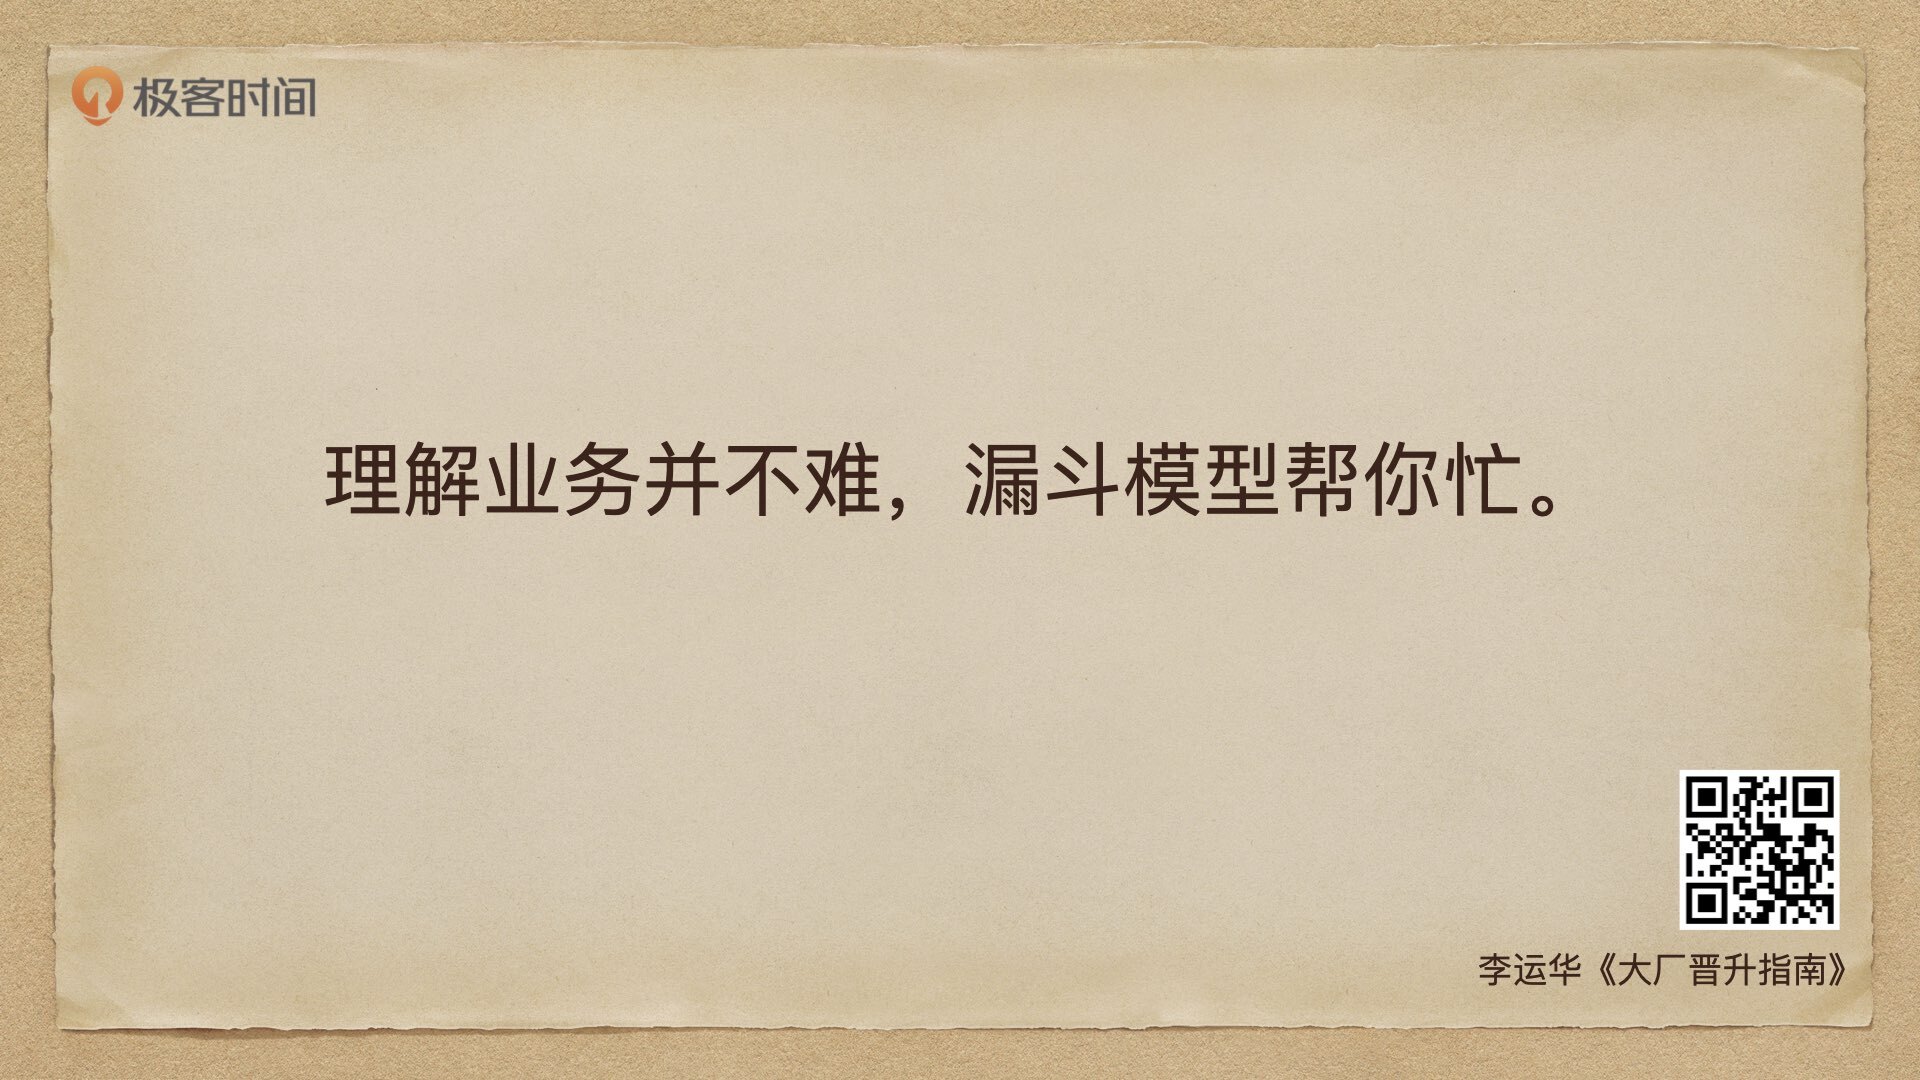 极客时间
理解业务并不难，漏斗模型帮你忙。
李运华《大厂晋升指南》